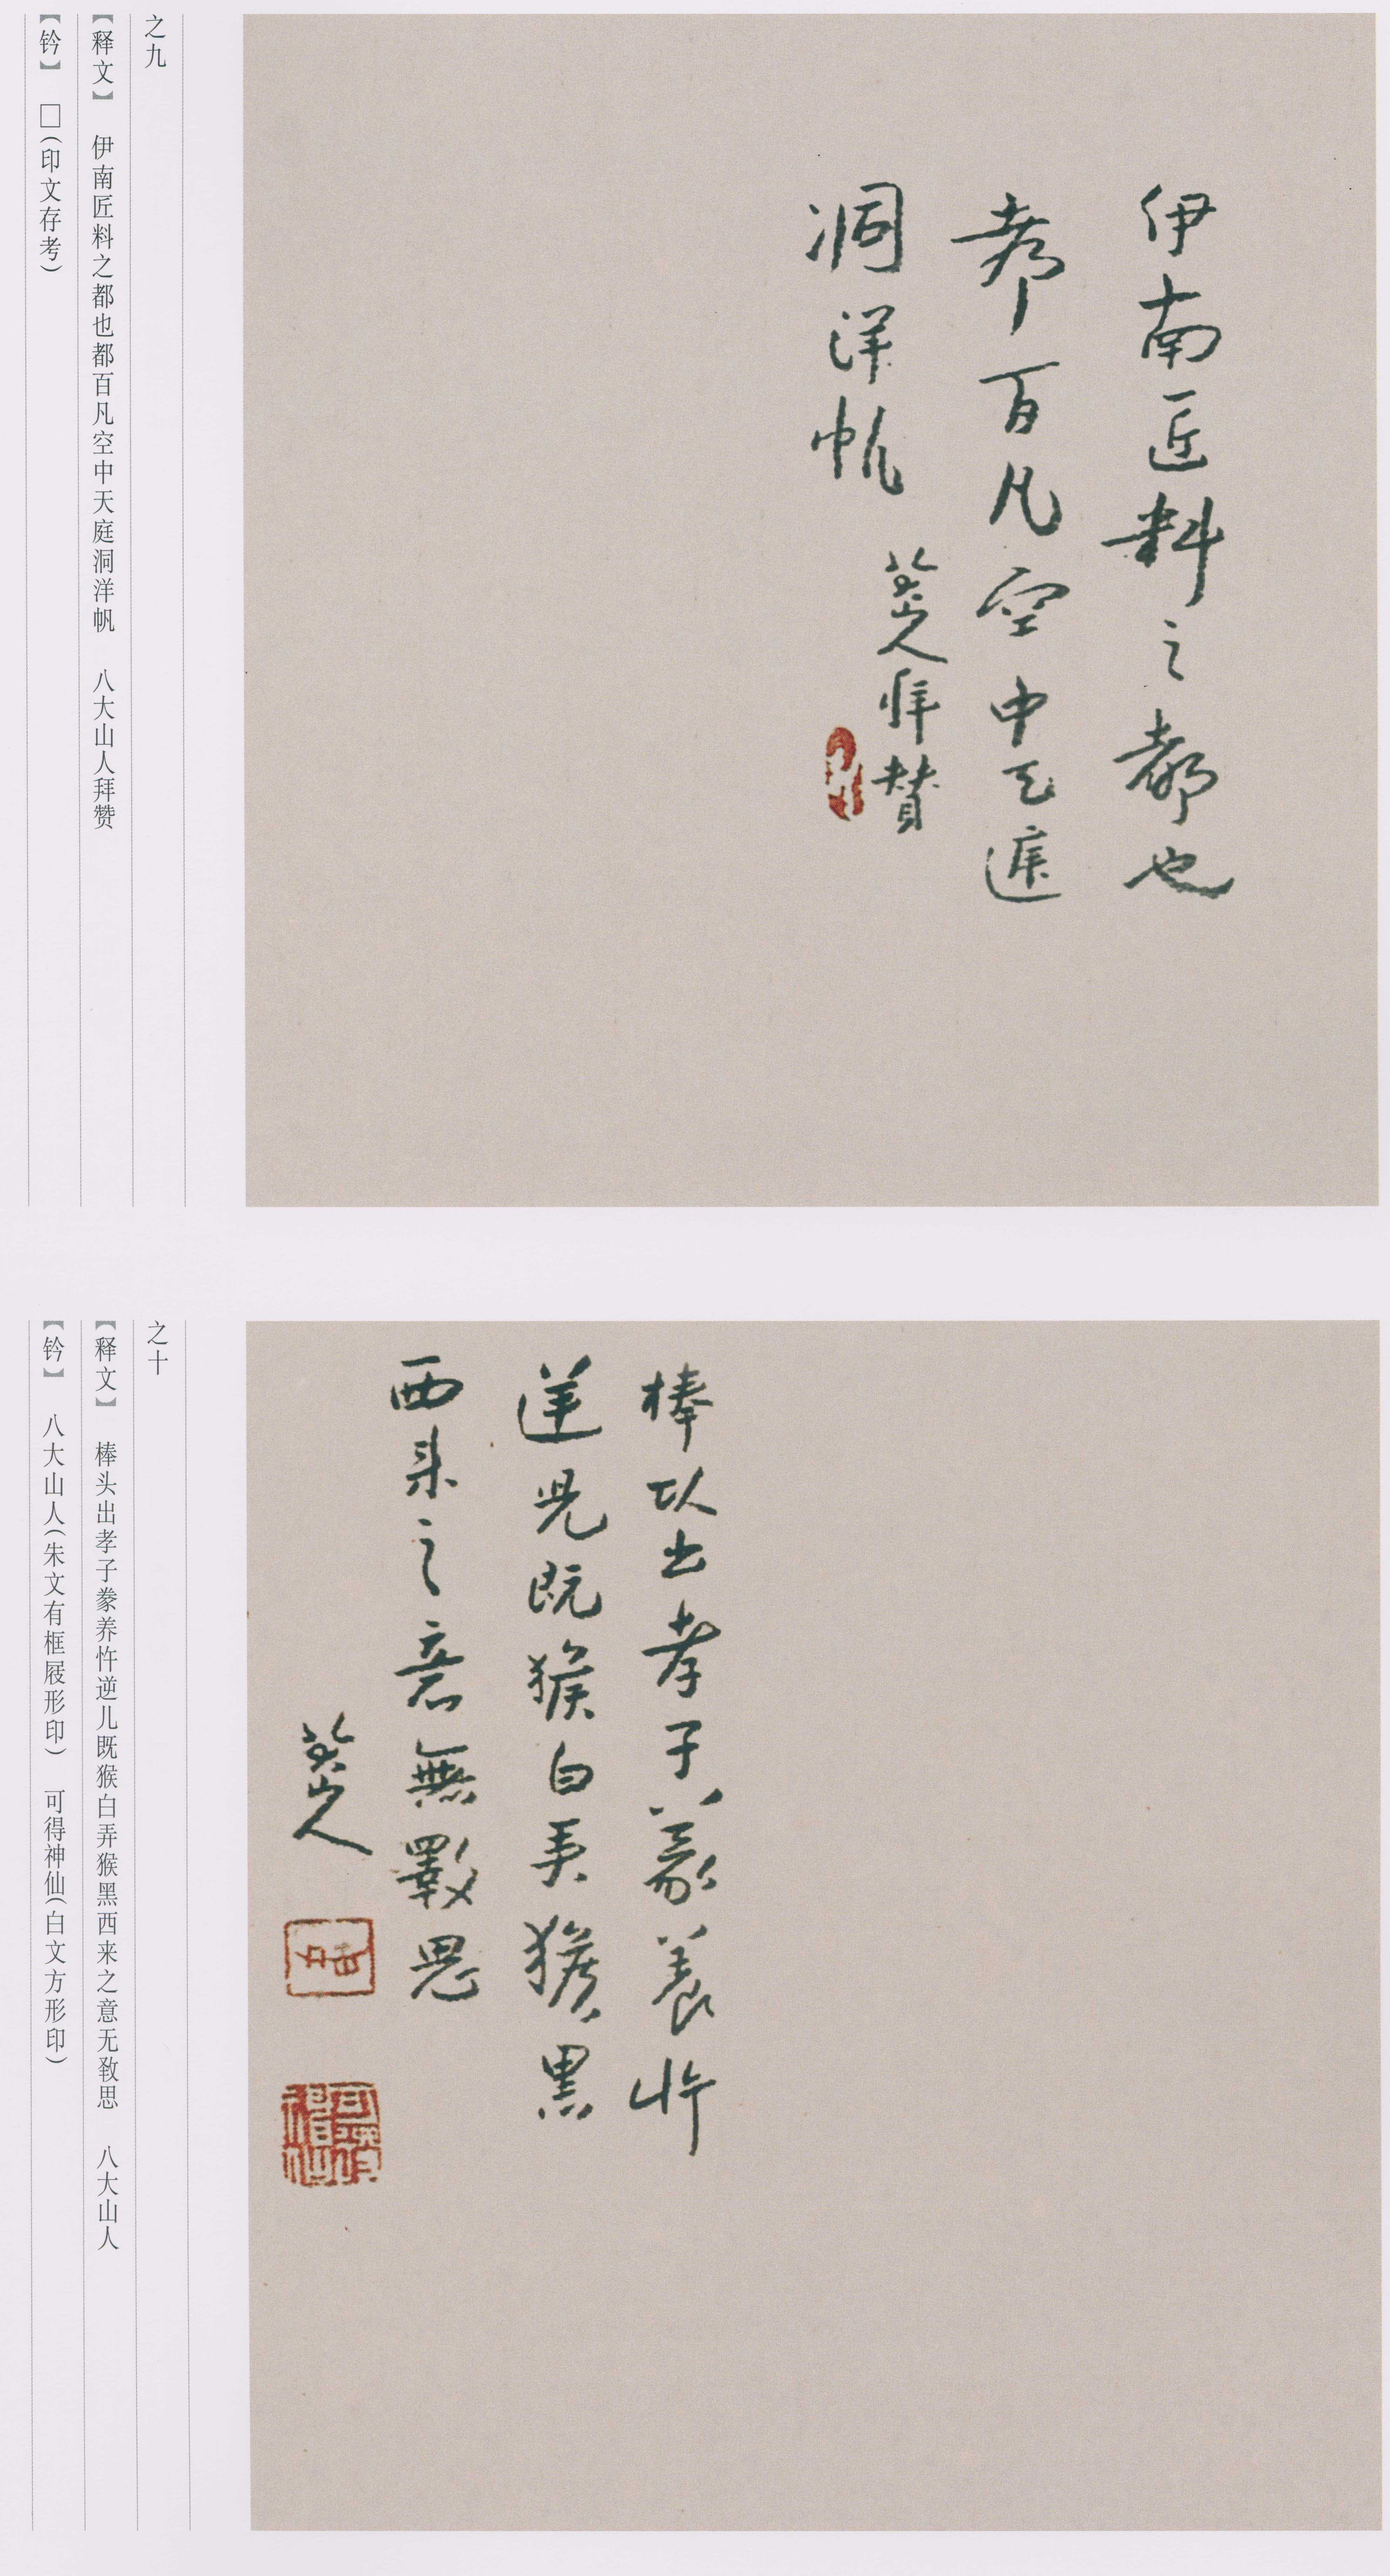 伊南匠料之都也
都百凡空中天庭
洞洋帆
八大山人拜赞
之九
【释文】 伊南匠料之都也都百凡空中天庭洞洋帆 八大山人拜赞
【钤】 □(印文存考)
棒头出孝子豢养忤
逆儿既猴白弄猴黑
西来之意無斁思
八大山人
可得神仙
之十
【释文】 棒头出孝子豢养忤逆儿既猴白弄猴黑西来之意无斁思 八大山人
【钤】 八大山人(朱文有框屐形印) 可得神仙(白文方形印)